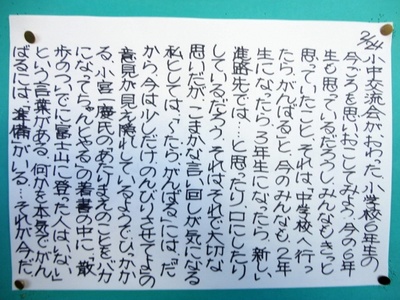 2/24
小中交流会がおわった。小学校6年生の
今ごろを思いおこしてみよう。今の6年
生も思っているだろうし、みんなもきっと
思っていたこと、それは「中学校へ行っ
たら、がんばる」と、今のみんなも、2年
生になったら、3年生になったら、新しい
進路先では…と思ったり、口にしたり
しているだろう。それはそれで大切な
思いだが、こまかな言い回しが気になる
私としては「〜たら、がんばる」には、「だ
から、今は少しだけのんびりさせてよ」の
意見が見え隠れしているようでひっかか
る。小宮一慶氏の「あたりまえのことを、
になってちゃんとやる」の著書の中に、「散
歩のついでに富士山に登った人はいない」
という言葉がある。何かを本気でがん
ばるには、「準備」がいる…それが今だ。